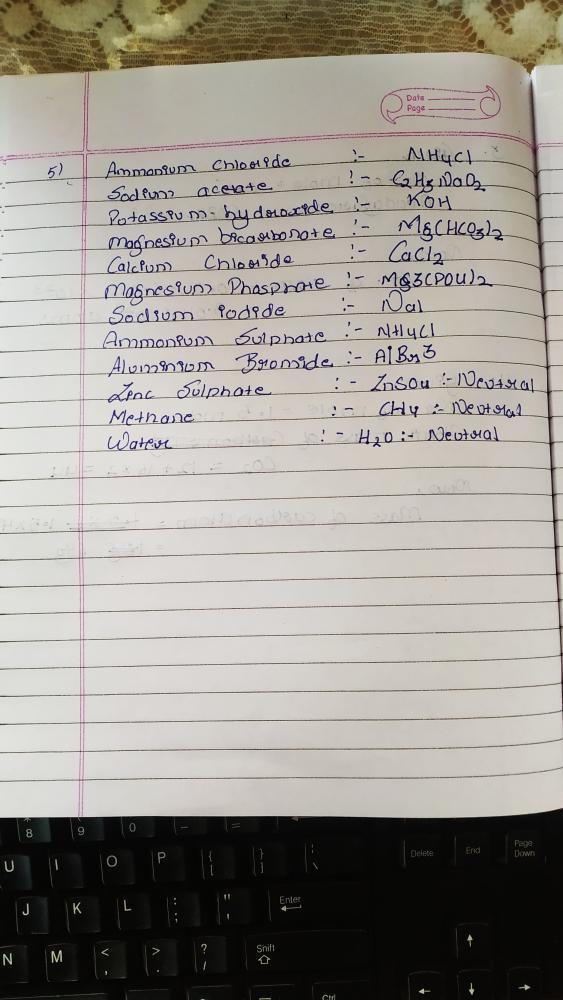 Date
Page
5) Ammonium Chloride :- NH4Cl
Sodium acetate :- C2H3NaO2
Potassium hydroxide :- KOH
Magnesium bicarbonate :- Mg(HCO3)2
Calcium Chloride :- CaCl2
Magnesium Phosphate :- Mg3(PO4)2
Sodium iodide :- NaI
Ammonium Sulphate :- NH4Cl
Aluminium Bromide :- AlBr3
Zinc Sulphate :- ZnSO4 :- Neutral
Methane :- CH4 :- Neutral
Water :- H2O :- Neutral
* 8 ( 9 ) 0 _ - + =
U I O P { [ } ] | \ Delete End Page Down
J K L : ; " ' Enter
N M < , > . ? / Shift
Ctrl